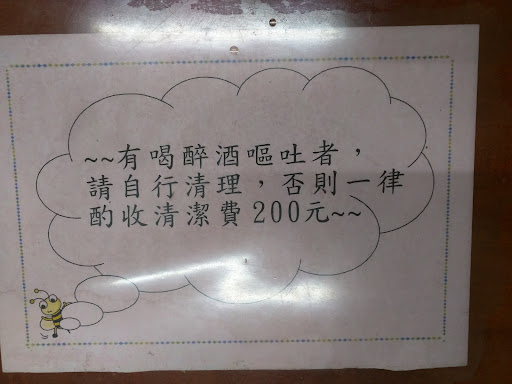 ~~有喝醉酒嘔吐者，
請自行清理，否則一律
酌收清潔費200元~~